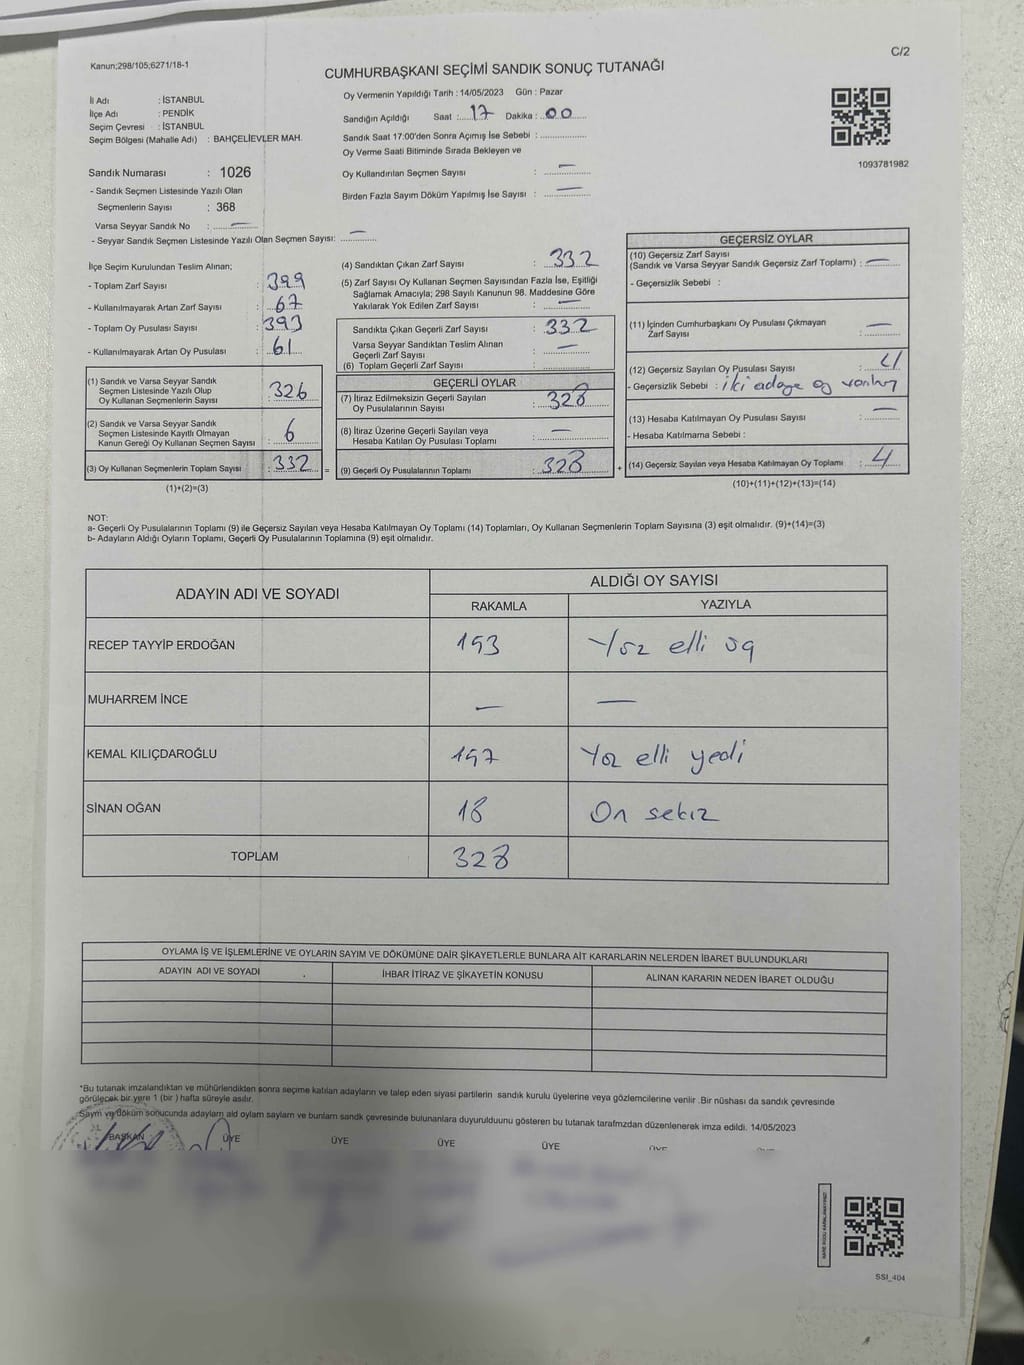 Kanun;298/105;6271/18-1
C/2
CUMHURBAŞKANI SEÇİMİ SANDIK SONUÇ TUTANAĞI
İl Adı : İSTANBUL
İlçe Adı : PENDİK
Seçim Çevresi : İSTANBUL
Seçim Bölgesi (Mahalle Adı) : BAHÇELİEVLER MAH.
Oy Vermenin Yapıldığı Tarih : 14/05/2023 Gün : Pazar
Sandığın Açıldığı Saat : 17 Dakika : 00
Sandık Saat 17:00'den Sonra Açımış İse Sebebi :
Oy Verme Saati Bitiminde Sırada Bekleyen ve
Oy Kullandırılan Seçmen Sayısı : —
Birden Fazla Sayım Döküm Yapılmış İse Sayısı : —
1093781982
Sandık Numarası : 1026
- Sandık Seçmen Listesinde Yazılı Olan
Seçmenlerin Sayısı : 368
Varsa Seyyar Sandık No : —
- Seyyar Sandık Seçmen Listesinde Yazılı Olan Seçmen Sayısı: —
İlçe Seçim Kurulundan Teslim Alınan;
- Toplam Zarf Sayısı : 399
- Kullanılmayarak Artan Zarf Sayısı : 67
- Toplam Oy Pusulası Sayısı : 393
- Kullanılmayarak Artan Oy Pusulası : 61
(1) Sandık ve Varsa Seyyar Sandık
Seçmen Listesinde Yazılı Olup
Oy Kullanan Seçmenlerin Sayısı : 326
(2) Sandık ve Varsa Seyyar Sandık
Seçmen Listesinde Kayıtlı Olmayan
Kanun Gereği Oy Kullanan Seçmen Sayısı : 6
(3) Oy Kullanan Seçmenlerin Toplam Sayısı : 332
(1)+(2)=(3)
=
(4) Sandıktan Çıkan Zarf Sayısı : 332
(5) Zarf Sayısı Oy Kullanan Seçmen Sayısından Fazla İse, Eşitliği
Sağlamak Amacıyla; 298 Sayılı Kanunun 98. Maddesine Göre
Yakılarak Yok Edilen Zarf Sayısı : —
Sandıkta Çıkan Geçerli Zarf Sayısı : 332
Varsa Seyyar Sandıktan Teslim Alınan
Geçerli Zarf Sayısı : —
(6) Toplam Geçerli Zarf Sayısı :
GEÇERLİ OYLAR
(7) İtiraz Edilmeksizin Geçerli Sayılan
Oy Pusulalarının Sayısı : 328
(8) İtiraz Üzerine Geçerli Sayılan veya
Hesaba Katılan Oy Pusulası Toplamı : —
(9) Geçerli Oy Pusulalarının Toplamı : 328
+
GEÇERSİZ OYLAR
(10) Geçersiz Zarf Sayısı
(Sandık ve Varsa Seyyar Sandık Geçersiz Zarf Toplamı) : —
- Geçersizlik Sebebi :
(11) İçinden Cumhurbaşkanı Oy Pusulası Çıkmayan
Zarf Sayısı : —
(12) Geçersiz Sayılan Oy Pusulası Sayısı : 4
- Geçersizlik Sebebi : iki adaya oy
(13) Hesaba Katılmayan Oy Pusulası Sayısı : —
- Hesaba Katılmama Sebebi :
(14) Geçersiz Sayılan veya Hesaba Katılmayan Oy Toplamı : 4
(10)+(11)+(12)+(13)=(14)
NOT:
a- Geçerli Oy Pusulalarının Toplamı (9) ile Geçersiz Sayılan veya Hesaba Katılmayan Oy Toplamı (14) Toplamları, Oy Kullanan Seçmenlerin Toplam Sayısına (3) eşit olmalıdır. (9)+(14)=(3)
b- Adayların Aldığı Oyların Toplamı, Geçerli Oy Pusulalarının Toplamına (9) eşit olmalıdır.
ADAYIN ADI VE SOYADI
ALDIĞI OY SAYISI
RAKAMLA YAZIYLA
RECEP TAYYİP ERDOĞAN 153 Yüz elli üç
MUHARREM İNCE — —
KEMAL KILIÇDAROĞLU 157 Yüz elli yedi
SİNAN OĞAN 18 On sekiz
TOPLAM 328
OYLAMA İŞ VE İŞLEMLERİNE VE OYLARIN SAYIM VE DÖKÜMÜNE DAİR ŞİKAYETLERLE BUNLARA AİT KARARLARIN NELERDEN İBARET BULUNDUKLARI
ADAYIN ADI VE SOYADI
İHBAR İTİRAZ VE ŞİKAYETİN KONUSU
ALINAN KARARIN NEDEN İBARET OLDUĞU
*Bu tutanak imzalandıktan ve mühürlendikten sonra seçime katılan adayların ve talep eden siyasi partilerin sandık kurulu üyelerine veya gözlemcilerine verilir .Bir nüshası da sandık çevresinde
görülecek bir yere 1 (bir ) hafta süreyle asılır.
Sayım ve döküm sonucunda adayların ald oylam sayların ve bunların sandk çevresinde bulunanlara duyurulduunu gösteren bu tutanak tarafmzdan düzenlenerek imza edildi. 14/05/2023
BAŞKAN ÜYE ÜYE ÜYE ÜYE
SSI_404